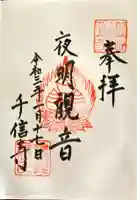 奉拝
夜明観音
令和三年一月十七日
千信寺